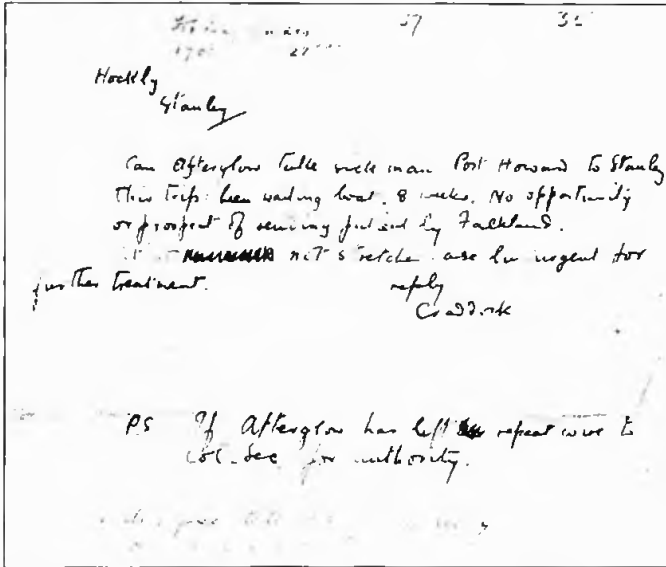 37 35
Hockly
Stanley
Can Afterglow take sick man Port Howard to Stanley
this trip: been waiting boat. 8 weeks. No opportunity
or prospect of removing patient by Falkland.
not stretcher case but urgent for
further treatment. reply
Craddock
PS If Afterglow has left repeat wire to
Col-Sec for authority.